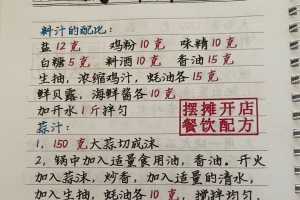 料汁的配比：
盐 12 克 鸡粉 10 克 味精 10 克
白糖 5 克 料酒 10 克 香油 15 克
生抽，浓缩鸡汁，蚝油各 15 克
鲜贝露，海鲜酱各 10 克
加开水 1 斤拌匀
摆摊开店
餐饮配方
蒜汁：
1，150 克大蒜切成沫
2，锅中加入适量食用油，香油。开火
加入蒜沫，炒香，加入适量的清水，
加入生抽，蚝油各 10 克，搅拌均匀，